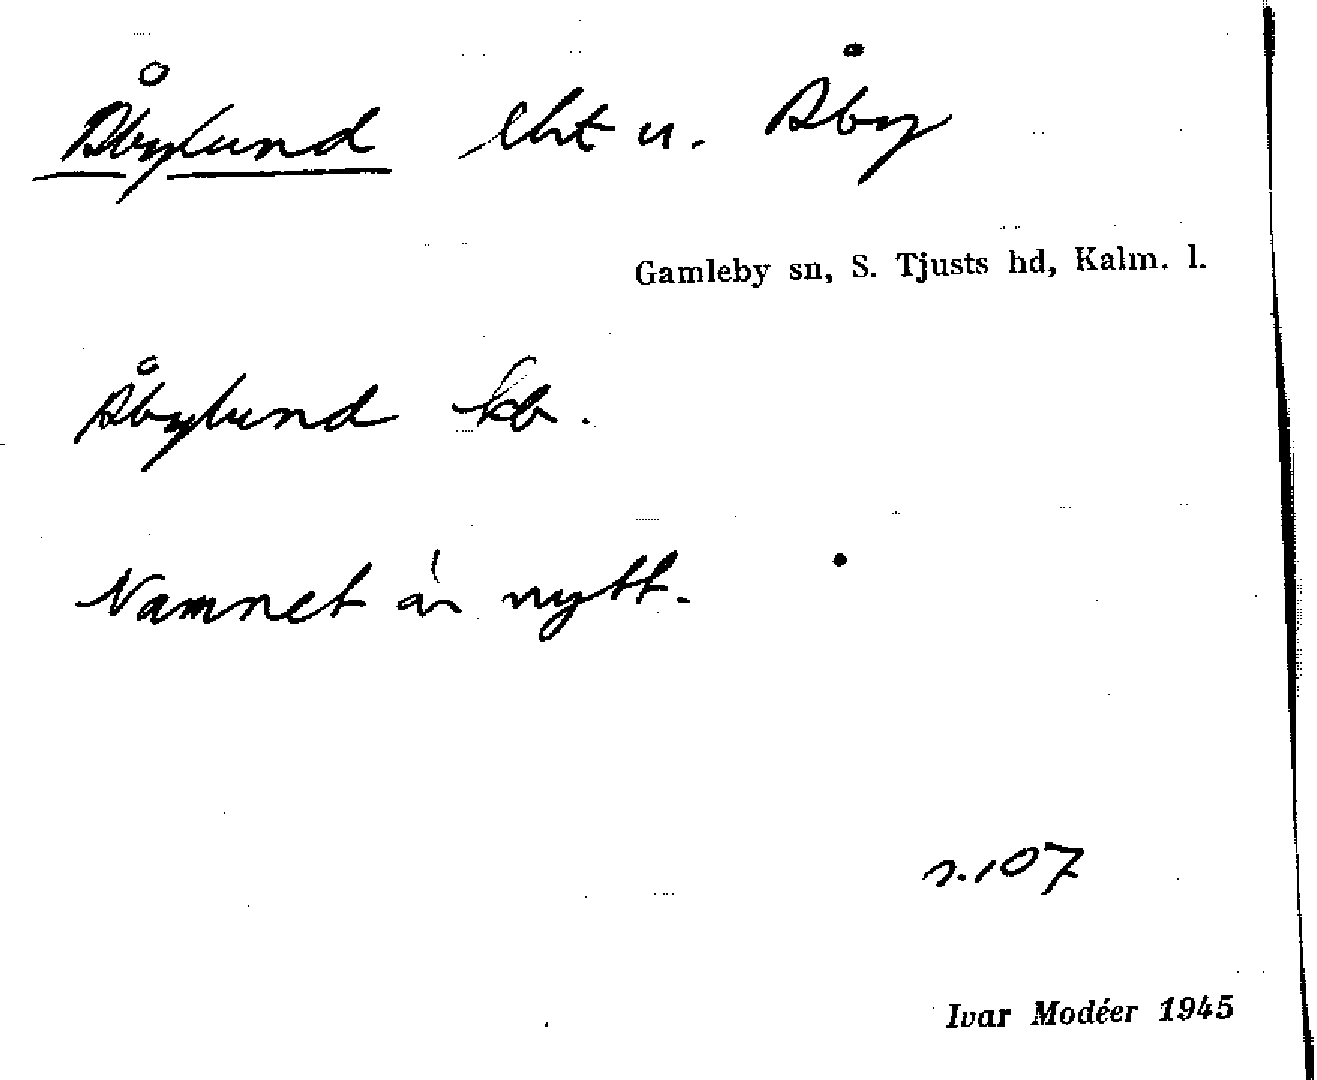 Åbylund lht u. Åby
Gamleby sn, S. Tjusts hd, Kalm. l.
Åbylund kb.
Namnet är nytt.
s. 107
Ivar Modéer 1945